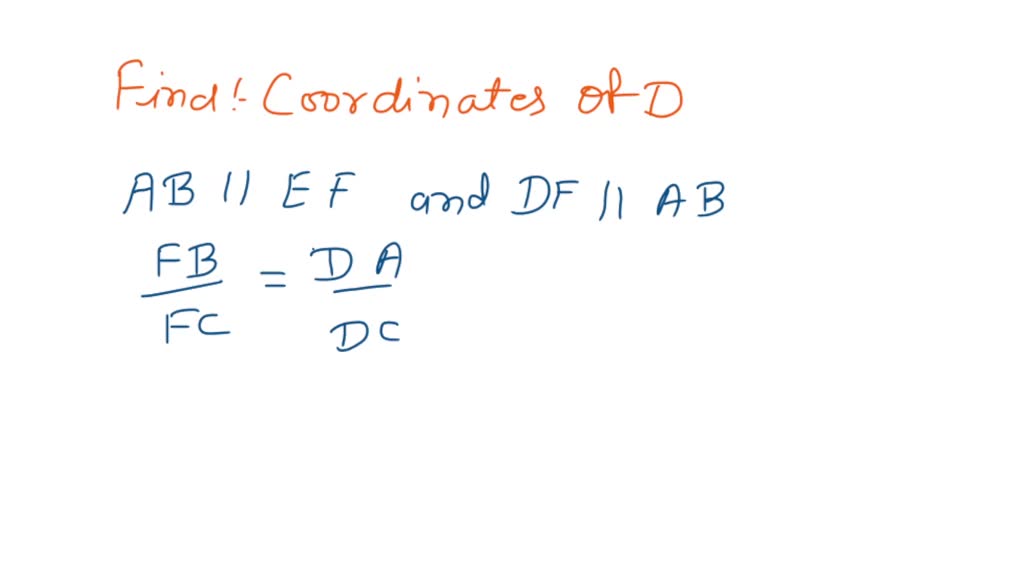 Find:- Coordinates of D
AB || EF and DF || AB
FB / FC = DA / DC